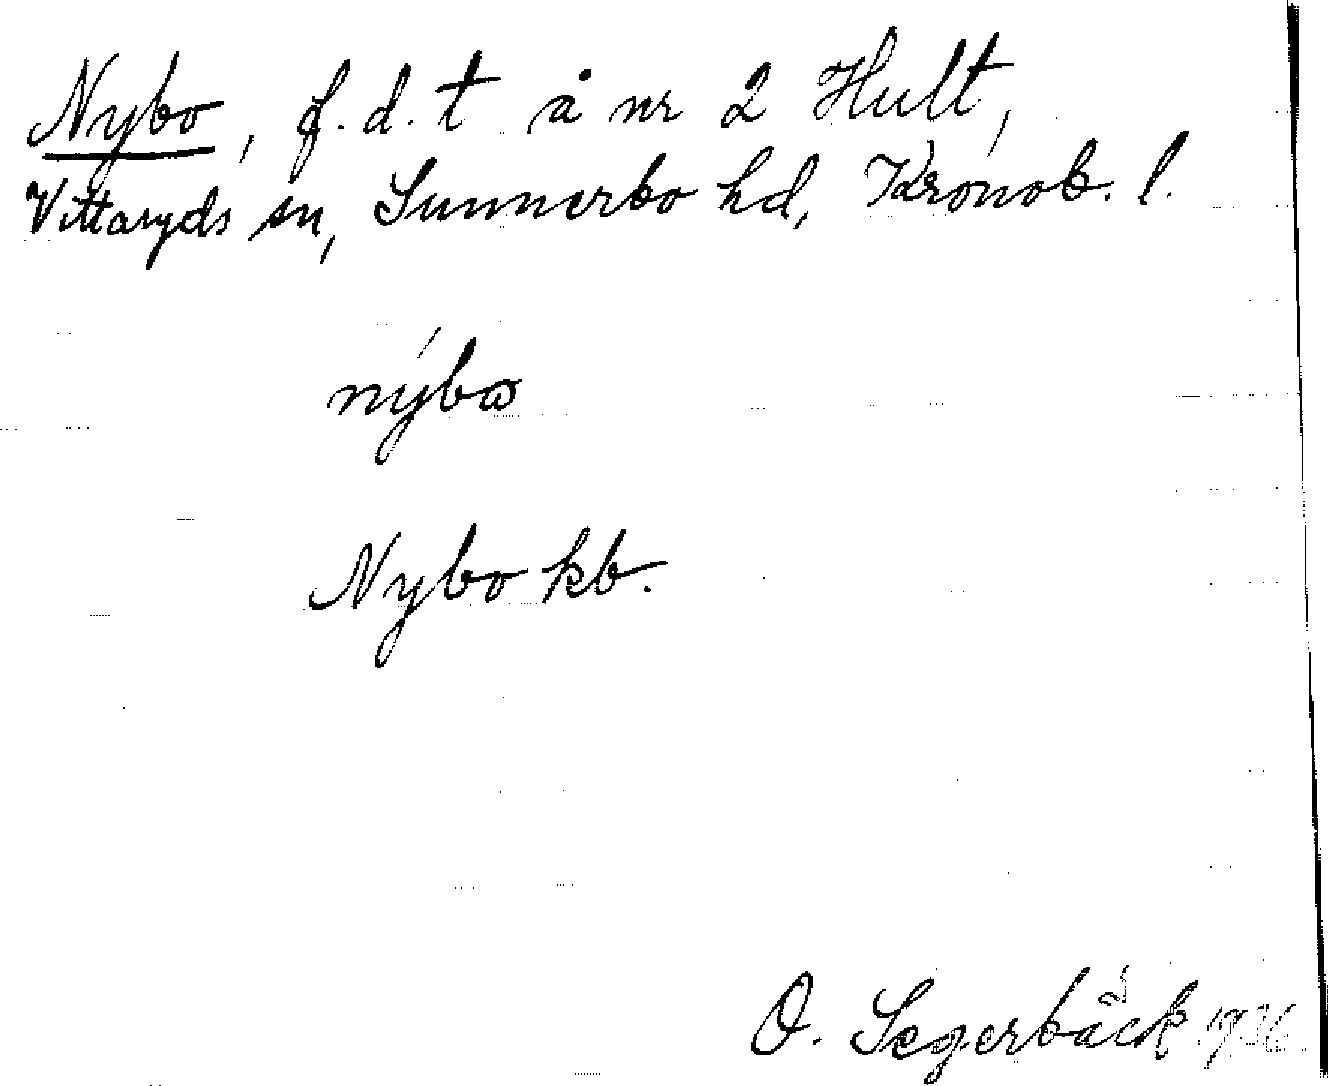 Nybo, f.d.t å nr 2 Hult,
Vittaryds sn, Sunnerbo hd, Kronob. l.
nýbω
Nybo kb.
O. Segerbäck 1936